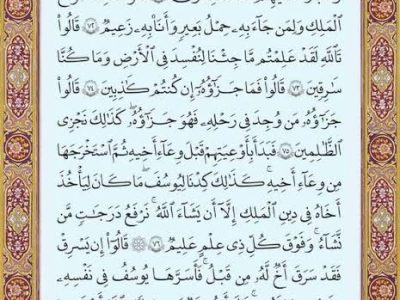 ٱلْمَلِكِ وَلِمَن جَآءَ بِهِۦ حِمْلُ بَعِيرٍ وَأَنَا۠ بِهِۦ زَعِيمٌ ۝٧٢ قَالُوا۟
تَٱللَّهِ لَقَدْ عَلِمْتُم مَّا جِئْنَا لِنُفْسِدَ فِى ٱلْأَرْضِ وَمَا كُنَّا
سَٰرِقِينَ ۝٧٣ قَالُوا۟ فَمَا جَزَٰٓؤُهُۥٓ إِن كُنتُمْ كَٰذِبِينَ ۝٧٤ قَالُوا۟
جَزَٰٓؤُهُۥ مَن وُجِدَ فِى رَحْلِهِۦ فَهُوَ جَزَٰٓؤُهُۥ ۚ كَذَٰلِكَ نَجْزِى
ٱلظَّٰلِمِينَ ۝٧٥ فَبَدَأَ بِأَوْعِيَتِهِمْ قَبْلَ وِعَآءِ أَخِيهِ ثُمَّ ٱسْتَخْرَجَهَا
مِن وِعَآءِ أَخِيهِ ۚ كَذَٰلِكَ كِدْنَا لِيُوسُفَ ۖ مَا كَانَ لِيَأْخُذَ
أَخَاهُ فِى دِينِ ٱلْمَلِكِ إِلَّآ أَن يَشَآءَ ٱللَّهُ ۚ نَرْفَعُ دَرَجَٰتٍ مَّن
نَّشَآءُ ۗ وَفَوْقَ كُلِّ ذِى عِلْمٍ عَلِيمٌ ۝٧٦ ۞ قَالُوٓا۟ إِن يَسْرِقْ
فَقَدْ سَرَقَ أَخٌ لَّهُۥ مِن قَبْلُ ۚ فَأَسَرَّهَا يُوسُفُ فِى نَفْسِهِۦ